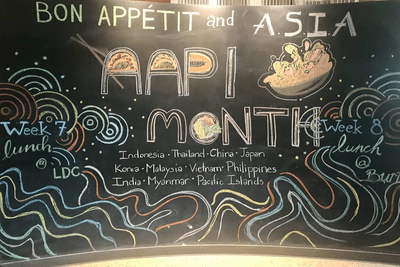 BON APPÉTIT and A.S.I.A
AAPI
MONTH
Week 7
lunch
@
LDC
Week 8
lunch
@
Indonesia · Thailand · China · Japan
Korea · Malaysia · Vietnam · Philippines
India · Myanmar · Pacific Islands